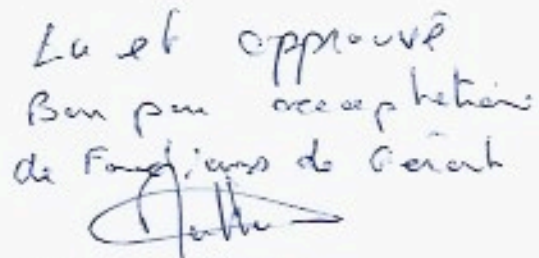 Lu et approuvé
Bon pour acceptation
de Fonctions de Gérant